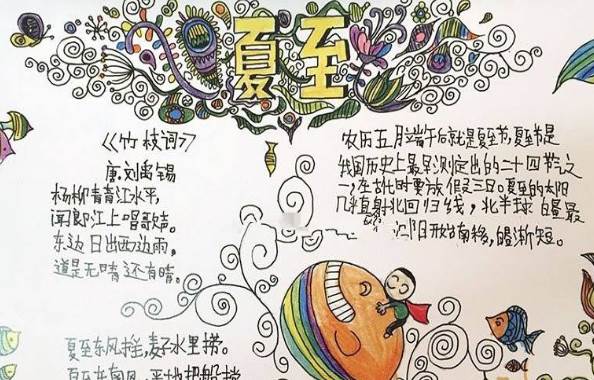 夏至
《竹枝词》
唐.刘禹锡
杨柳青青江水平,
闻郎江上唱歌声。
东边日出西边雨,
道是无晴还有晴。
农历五月端午后就是夏至节,夏至节是
我国历史上最早测定出的二十四节气之
一,在古代时要放假三日。夏至的太阳
几直射北回归线,北半球昼最
阳开始南移,昼渐短。
夏至东风摇,麦子水里捞。
夏至东南风,平地把船